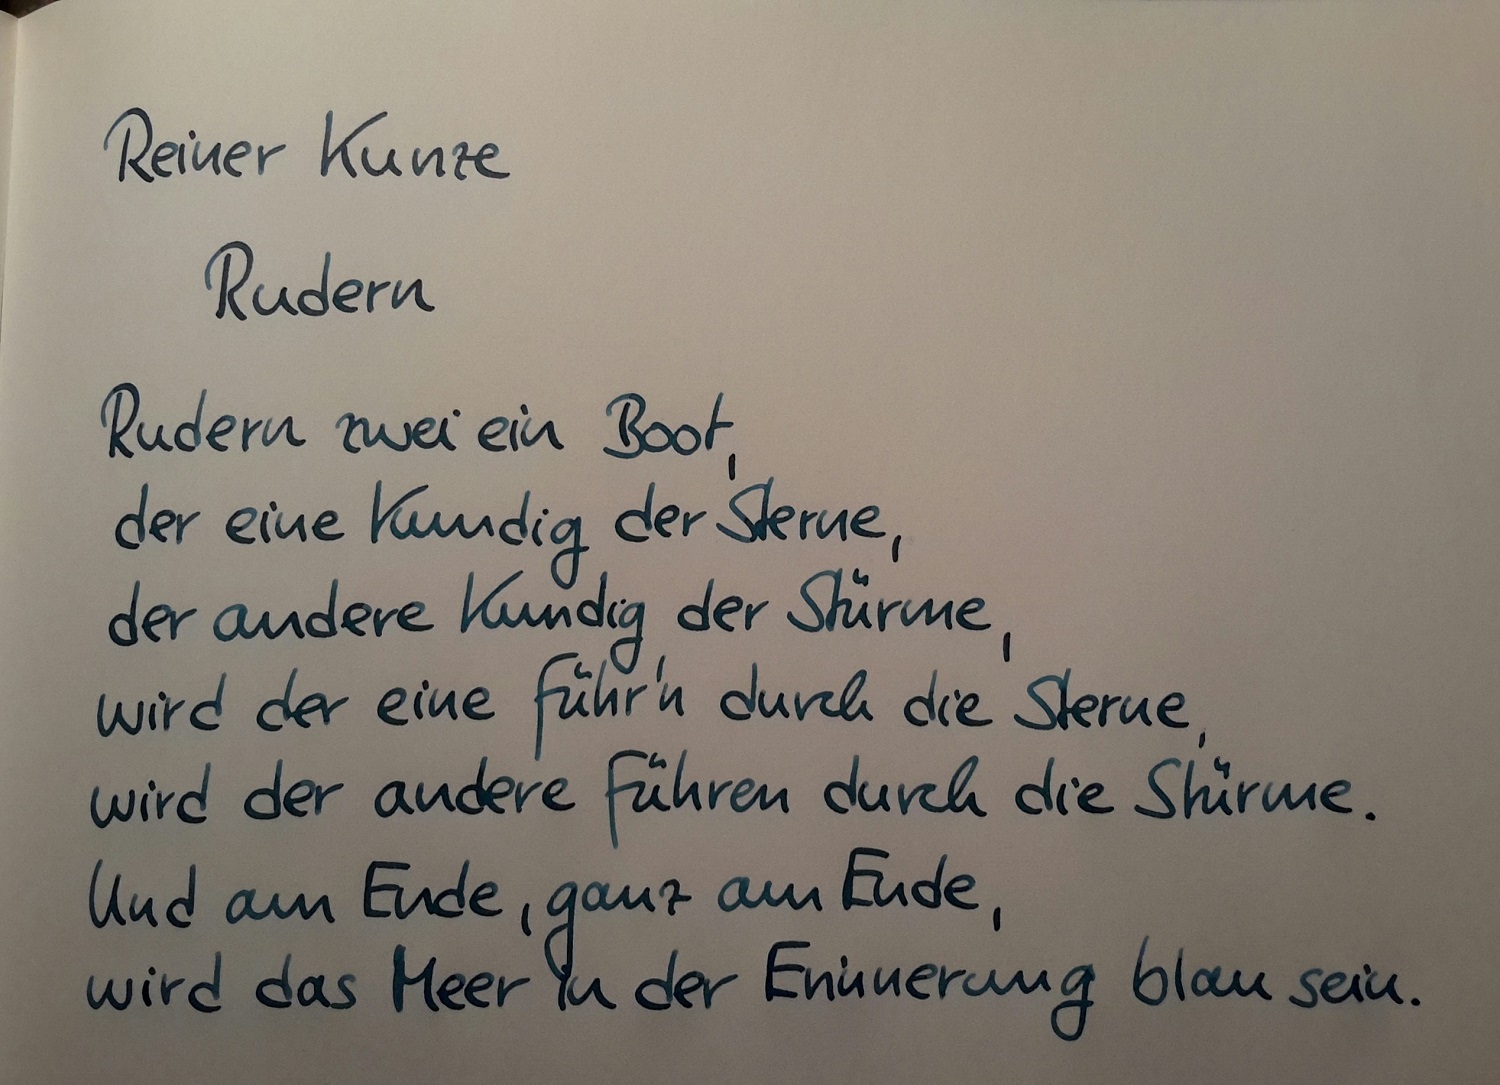 Reiner Kunze
Rudern
Rudern zwei ein Boot,
der eine Kundig der Sterne,
der andere Kundig der Stürme,
wird der eine führ'n durch die Sterne,
wird der andere führen durch die Stürme.
Und am Ende, ganz am Ende,
wird das Meer in der Erinnerung blau sein.